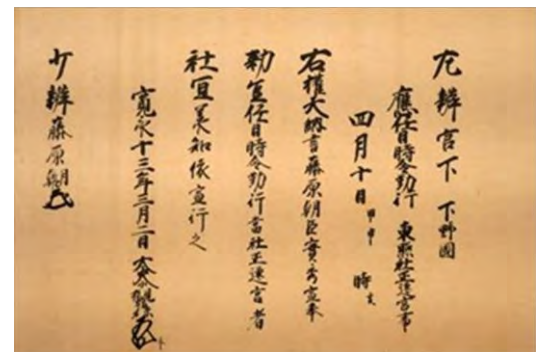 左辨官下 下野國
應任日時令勤行 東照社正遷宮事
四月十日 甲申 時亥
右權大納言藤原朝臣實秀宣奉
勅宣任日時令勤行當社正遷宮者
社宜羨知依宣行之
寛永十三年三月二日
少辨藤原朝臣